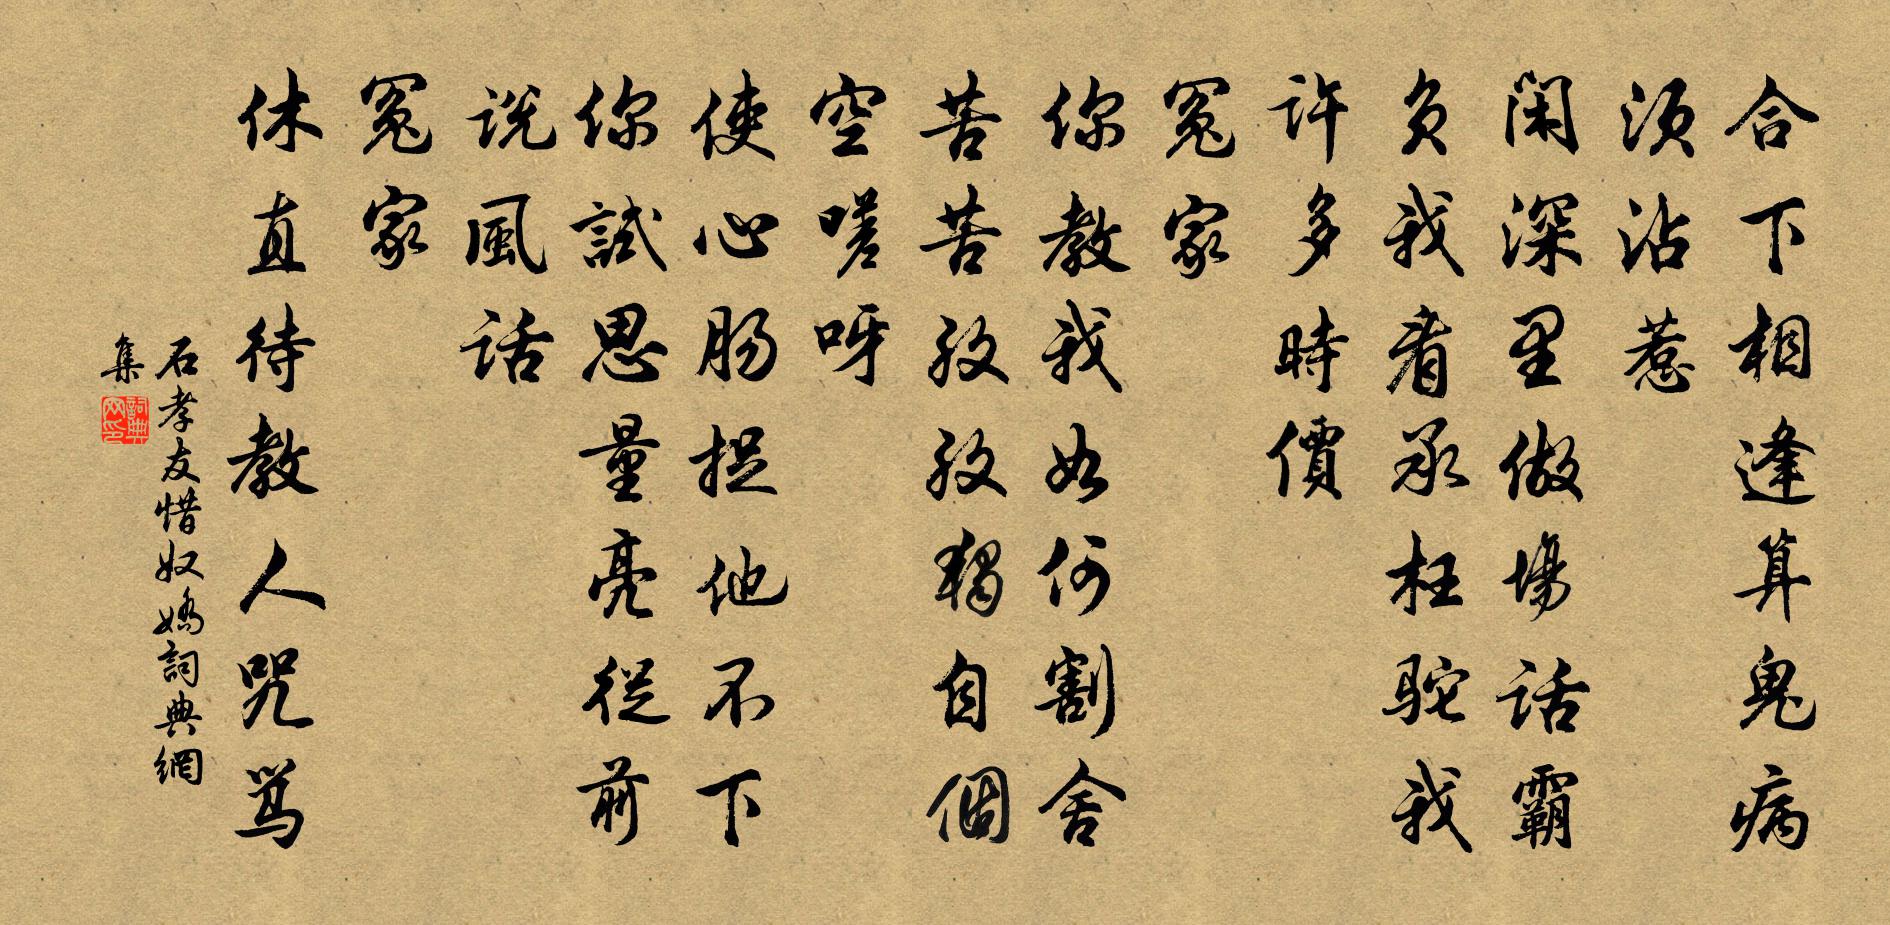 合下相逢算鬼病
須沾惹
閑深里做場話霸
負我看承枉駝我
許多時價
冤家
你教我如何割舍
苦苦孜孜獨自個
空嗟呀
使心腸捉他不下
你試思量亮從前
説風話
冤家
休直待教人咒骂
石孝友惜奴嬌詞典網
集
詞典网印